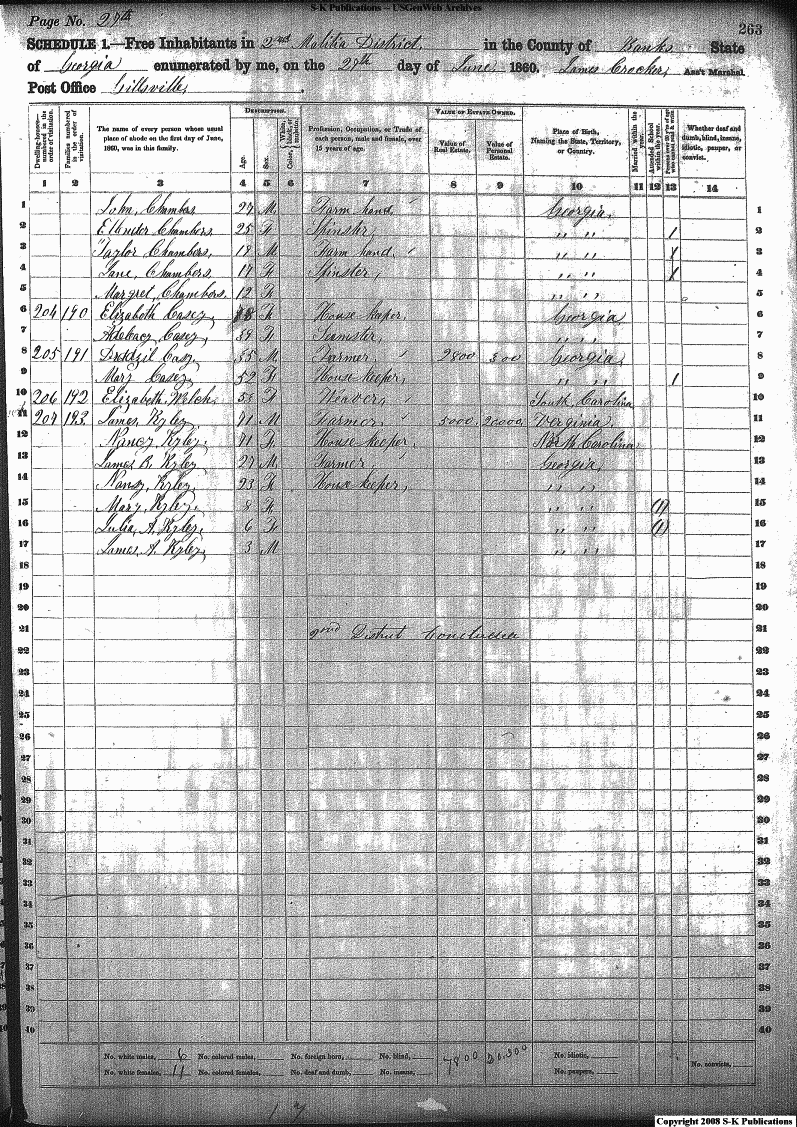 S-K Publications – USGenWeb Archives
Page No. 27th
263
SCHEDULE 1.—Free Inhabitants in 2nd Malitia District, in the County of Banks State
of Georgia enumerated by me, on the 27th day of June 1860. James Crocker, Ass't Marshal.
Post Office Gillsville, .
Dwelling-houses—numbered in the order of visitation.
Families numbered in the order of visitation.
The name of every person whose usual place of abode on the first day of June, 1860, was in this family.
DESCRIPTION.
Age.
Sex.
Color, {White, black, or mulatto.
Profession, Occupation, or Trade of each person, male and female, over 15 years of age.
VALUE OF ESTATE OWNED.
Value of Real Estate.
Value of Personal Estate.
Place of Birth, Naming the State, Territory, or Country.
Married within the year.
Attended School within the year.
Persons over 20 y'rs of age who cannot read & write
Whether deaf and dumb, blind, insane, idiotic, pauper, or convict.
1 2 3 4 5 6 7 8 9 10 11 12 13 14
1 John, Chambers 27 M, Farm hand, Georgia, 1
2 Chambers, 25 F, Spinster, " " / 2
3 Taylor Chambers, 19 M Farm hand, " " / 3
4 Jane, Chambers, 17 F, Spinster, " " 4
5 Margret Chambers, 12 F, " " 5
6 204 190 Elizabeth Casey, F, House keeper, Georgia, 6
7 Casey, F, " " 7
8 205 191 55 M Farmer, 2800 300 Georgia, 8
9 Mary Casey, 52 F, House keeper, " " / 9
10 206 192 Elizabeth, Welch, F, Weaver, South, Carolina 10
11 207 193. James, Kyley, 71 M Farmer, 5000 20000 Verginia, 11
12 Nancy, Kyley, 71 F, House keeper, North Carolina, 12
13 James R, Kyley 27 M, Farmer Georgia, 13
14 Nansy, Kyley, 23 F, House keeper, " " 14
15 Mary, Kyley, 8 F, " " (1) 15
16 Julia, A. Kyley, 6 F, " " (1) 16
17 James, A. Kyley, 3 M " " 17
18 18
19 19
20 20
21 2nd District Concluded 21
22 22
23 23
24 24
25 25
26 26
27 27
28 28
29 29
30 30
31 31
32 32
33 33
34 34
35 35
36 36
37 37
38 38
39 39
40 40
No. white males, 6 No. colored males, No. foreign born, No. blind, 7800 20,300 No. idiotic,
No. white females, 11 No. colored females, No. deaf and dumb, No. insane, No. paupers, No. convicts,
17
Copyright 2008 S-K Publications